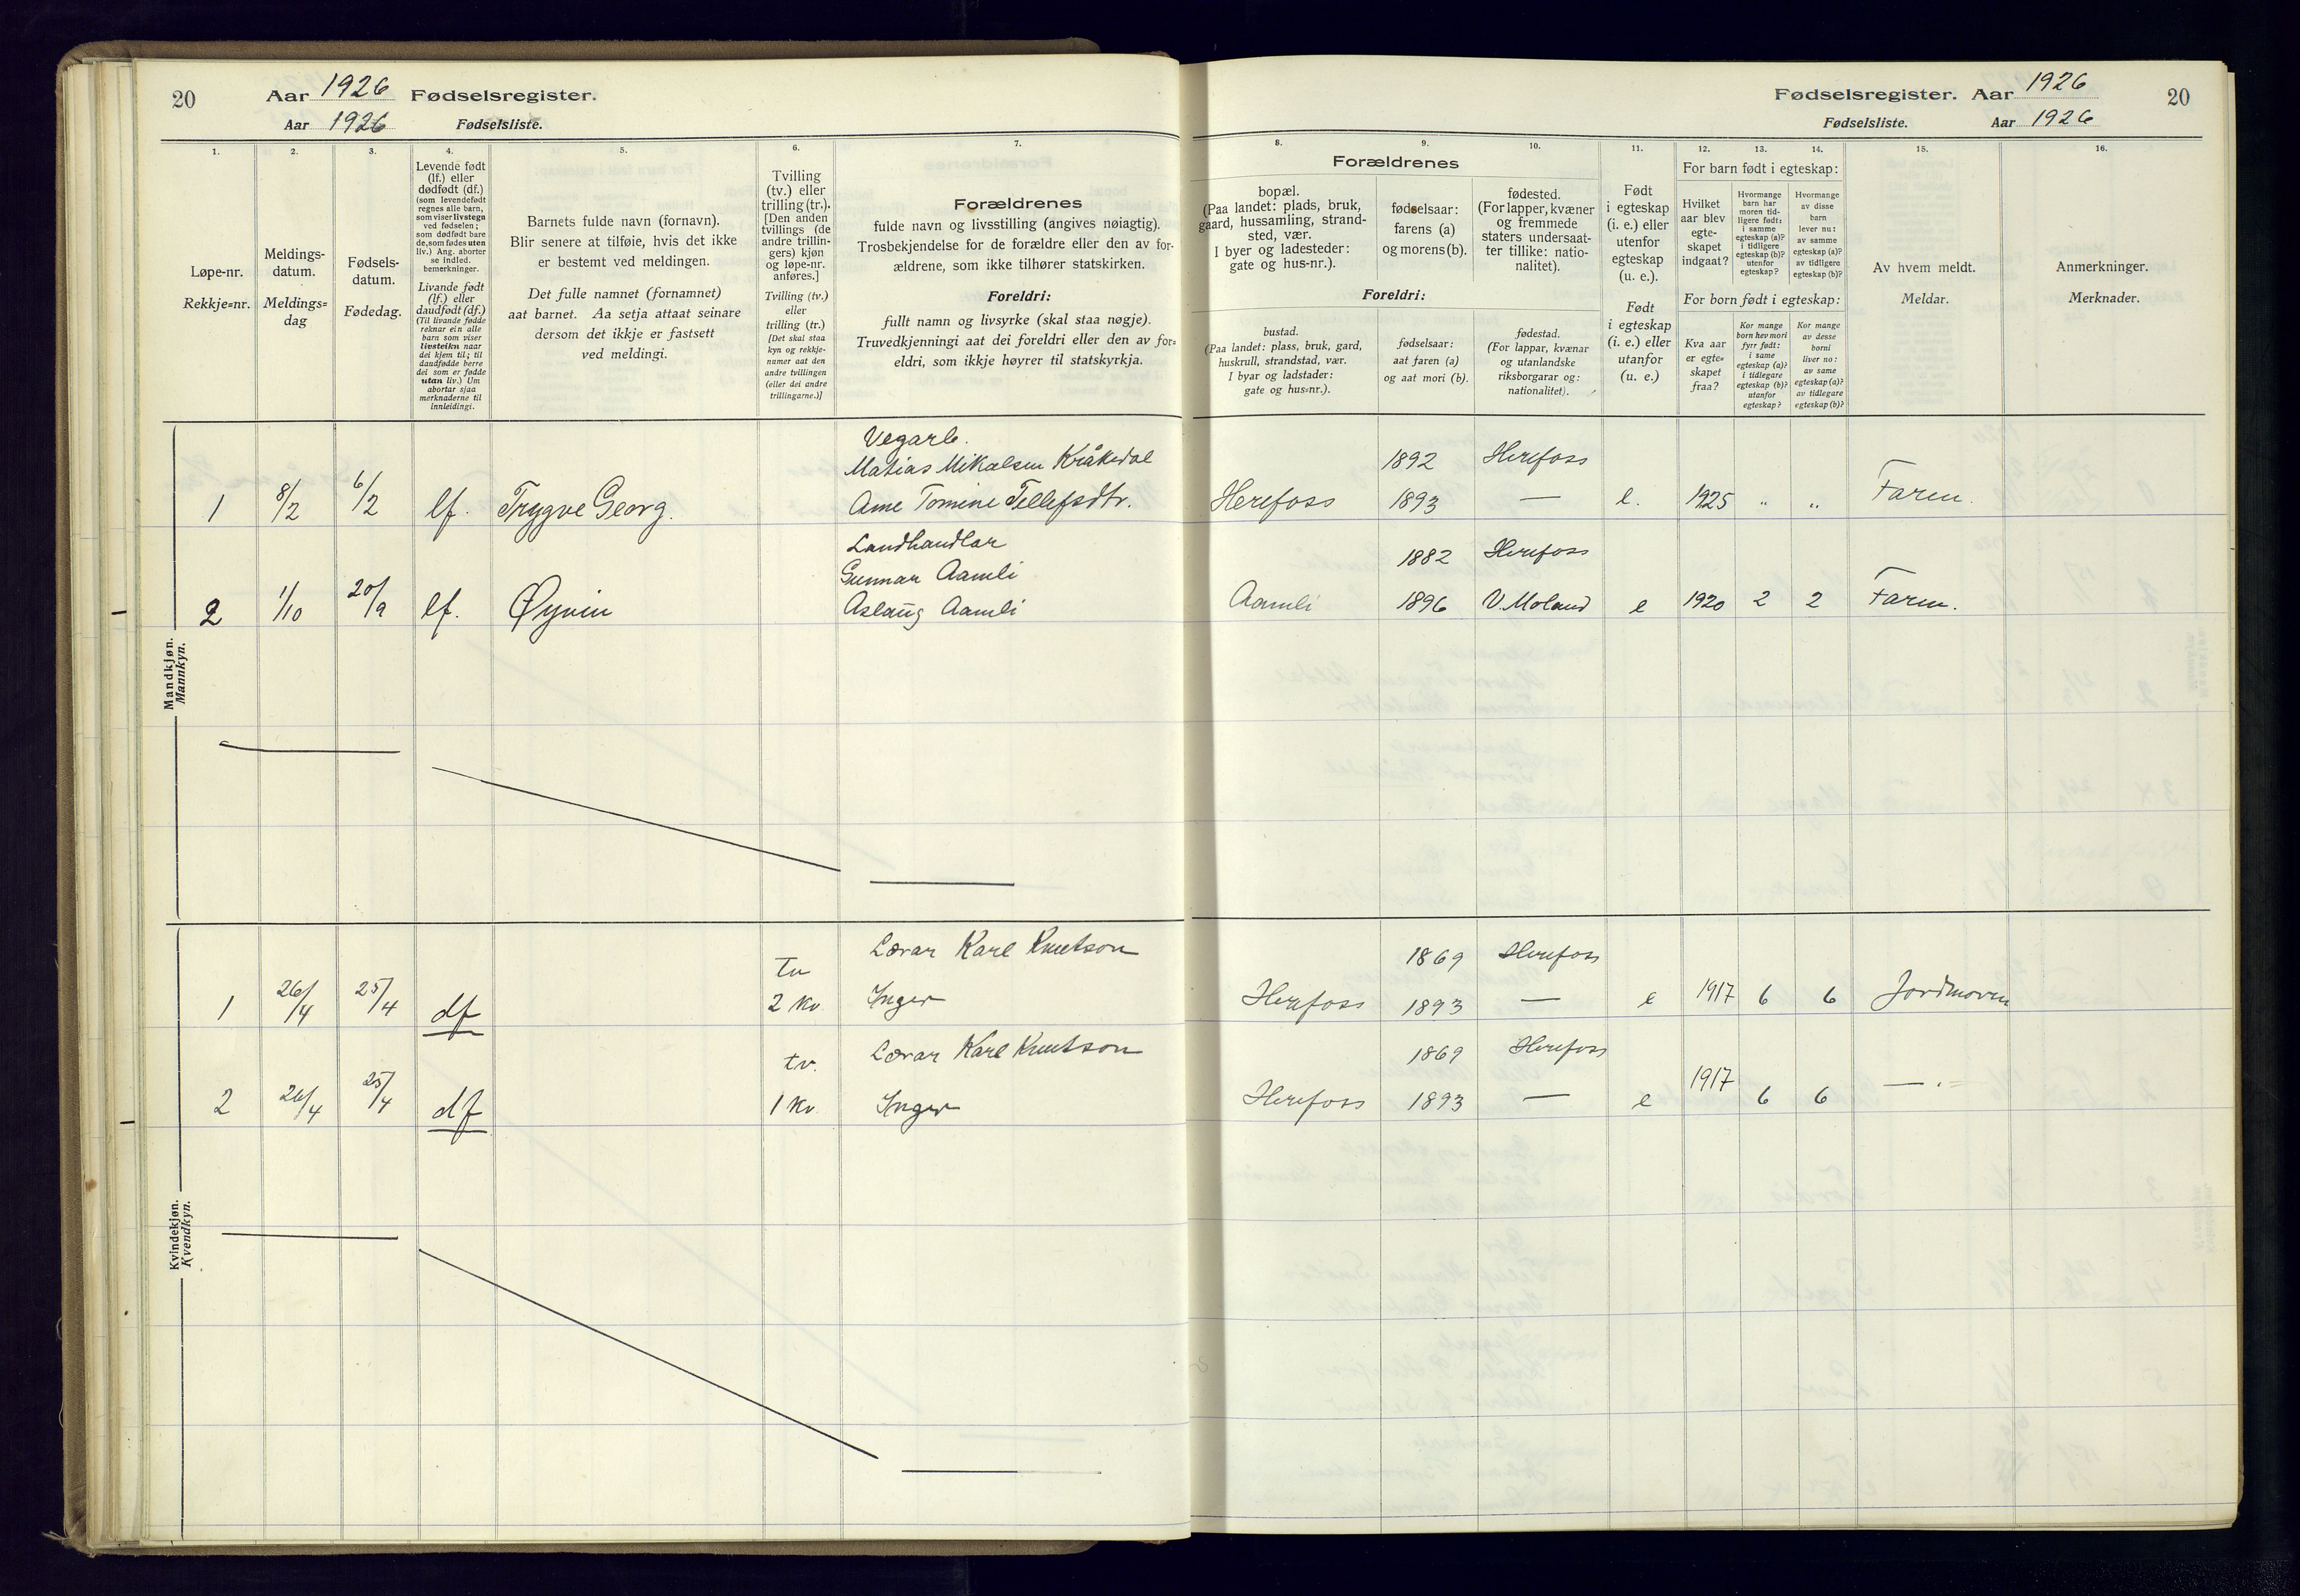 20 Aar 1926 Fødselsregister.
Aar 1926 Fødselsliste.
1.
Løpe-nr.
Rekkje-nr.
2.
Meldings-
datum.
Meldings-
dag
3.
Fødsels-
datum.
Fødedag.
4.
Levende født
(lf.) eller
dødfødt (df.)
(som levendefødt
regnes alle barn,
som viser livstegn
ved fødselen;
som dødfødt bare
de, som fødes uten
liv.) Ang. aborter
se indled.
bemerkninger.
Livande født
(lf.) eller
daudfødt (df.)
(Til livande fødde
reknar ein alle
barn som viser
livsteikn naar
dei kjem til; til
daudfødde berre
dei som er fødde
utan liv.) Um
abortar sjaa
merknaderne til
innleidingi.
5.
Barnets fulde navn (fornavn).
Blir senere at tilføie, hvis det ikke
er bestemt ved meldingen.
Det fulle namnet (fornamnet)
aat barnet. Aa setja attaat seinare
dersom det ikkje er fastsett
ved meldingi.
6.
Tvilling
(tv.) eller
trilling (tr.).
[Den anden
tvillings (de
andre trillin-
gers) kjøn
og løpe-nr.
anføres.]
Tvilling (tv.)
eller
trilling (tr.)
[Det skal staa
kyn og rekkje-
numer aat den
andre tvillingen
(eller dei andre
trillingarne.)]
7.
Forældrenes
fulde navn og livsstilling (angives nøiagtig).
Trosbekjendelse for de forældre eller den av for-
ældrene, som ikke tilhører statskirken.
Foreldri:
fullt namn og livsyrke (skal staa nøgje).
Truvedkjenningi aat dei foreldri eller den av for-
eldri, som ikkje høyrer til statskyrkja.
Mandkjøn.
Mannkyn.
Vegarb.
Matias Mikalsen Kråkedal
1 8/2 6/2 lf. Trygve Georg. Ane Tomine Tellefsdtr.
Landhandlar
Gunnar Aamli
2 1/10 20/9 lf. Øyvin Aslaug Aamli
Kvindekjøn.
Kvendkyn.
tv Lærar Karl Knutson
1 26/4 25/4 df 2 kv Inger
tv. Lærar Karl Knutson
2 26/4 25/4 df 1 kv Inger
Fødselsregister. Aar 1926 20
Fødselsliste. Aar 1926
8.
Forældrenes
bopæl.
(Paa landet: plads, bruk,
gaard, hussamling, strand-
sted, vær.
I byer og ladesteder:
gate og hus-nr.).
Foreldri:
bustad.
(Paa landet: plass, bruk, gard,
huskrull, strandstad, vær.
I byar og ladstader:
gate og hus-nr.).
9.
fødselsaar:
farens (a)
og morens (b).
fødselsaar:
aat faren (a)
og aat mori (b).
10.
fødested.
(For lapper, kvæner
og fremmede
staters undersaat-
ter tillike: natio-
nalitet).
fødestad.
(For lappar, kvænar
og utanlandske
riksborgarar og:
nationalitet).
11.
Født
i egteskap
(i. e.) eller
utenfor
egteskap
(u. e.).
Født
i egteskap
(i. e.) eller
utanfor
(u. e.)
For barn født i egteskap:
12.
Hvilket
aar blev
egte-
skapet
indgaat?
13.
Hvormange
barn har
moren tid-
ligere født:
i samme
egteskap (a)?
i tidligere
egteskap (b)?
utenfor
egteskap?
14.
Hvormange
av disse
barn
lever nu:
av samme
egteskap (a)?
av tidligere
egteskap (b)?
For born født i egteskap:
Kva aar
er egte-
skapet
fraa?
Kor mange
born hev mori
fyrr født:
i same
egteskap (a)?
i tidlegare
egteskap (b)?
utanfor
egteskap?
Kor mange
av desse
borni
liver no:
av same
egteskap (a)?
av tidlegare
egteskap (b)?
15.
Av hvem meldt.
Meldar.
16.
Anmerkninger.
Merknader.
1892 Herefoss
Herefoss 1893 — e. 1925 " " Faren.
1882 Herefoss
Aamli 1896 V. Moland e 1920 2 2 Faren.
1869 Herefoss
Herefoss 1893 — e 1917 6 6 Jordmoren
1869 Herefoss
Herefoss 1893 — e 1917 6 6 — " —